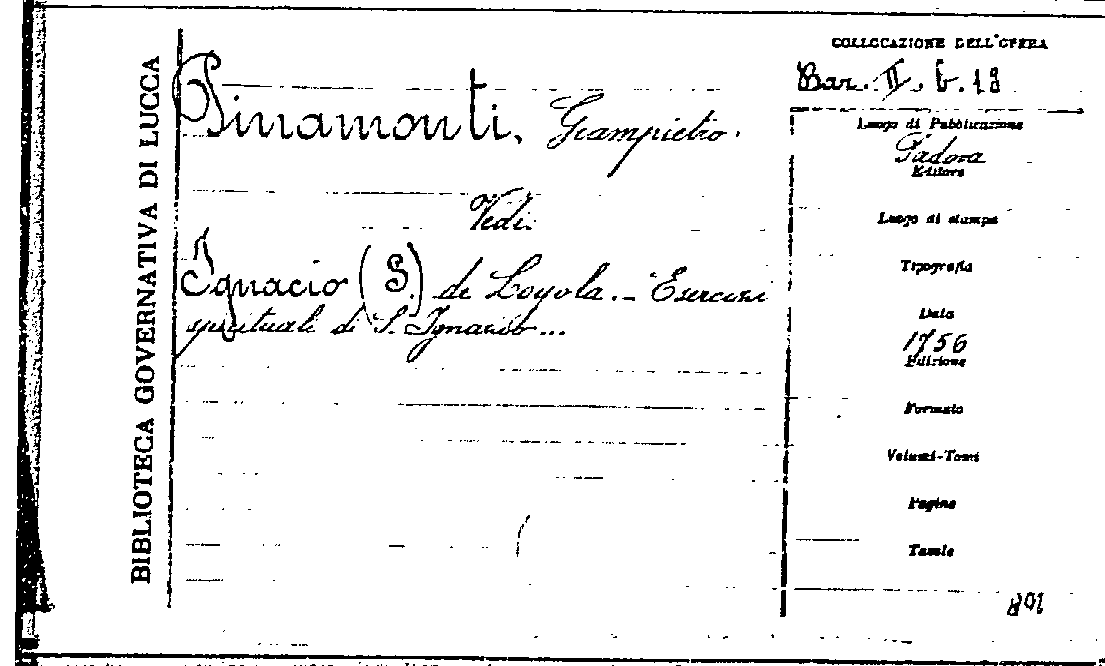 BIBLIOTECA GOVERNATIVA DI LUCCA
Pinamonti, Giampietro.
Vedi
Ignacio (S.) de Loyola. - Esercizi
spirituali di S. Ignazio...
COLLOCAZIONE DELL'OPERA
Bar. II. b. 13
Luogo di Pubblicazione
Padova
Editore
Luogo di stampa
Tipografia
Data
1756
Edizione
Formato
Volumi-Tomi
Pagine
Tavole